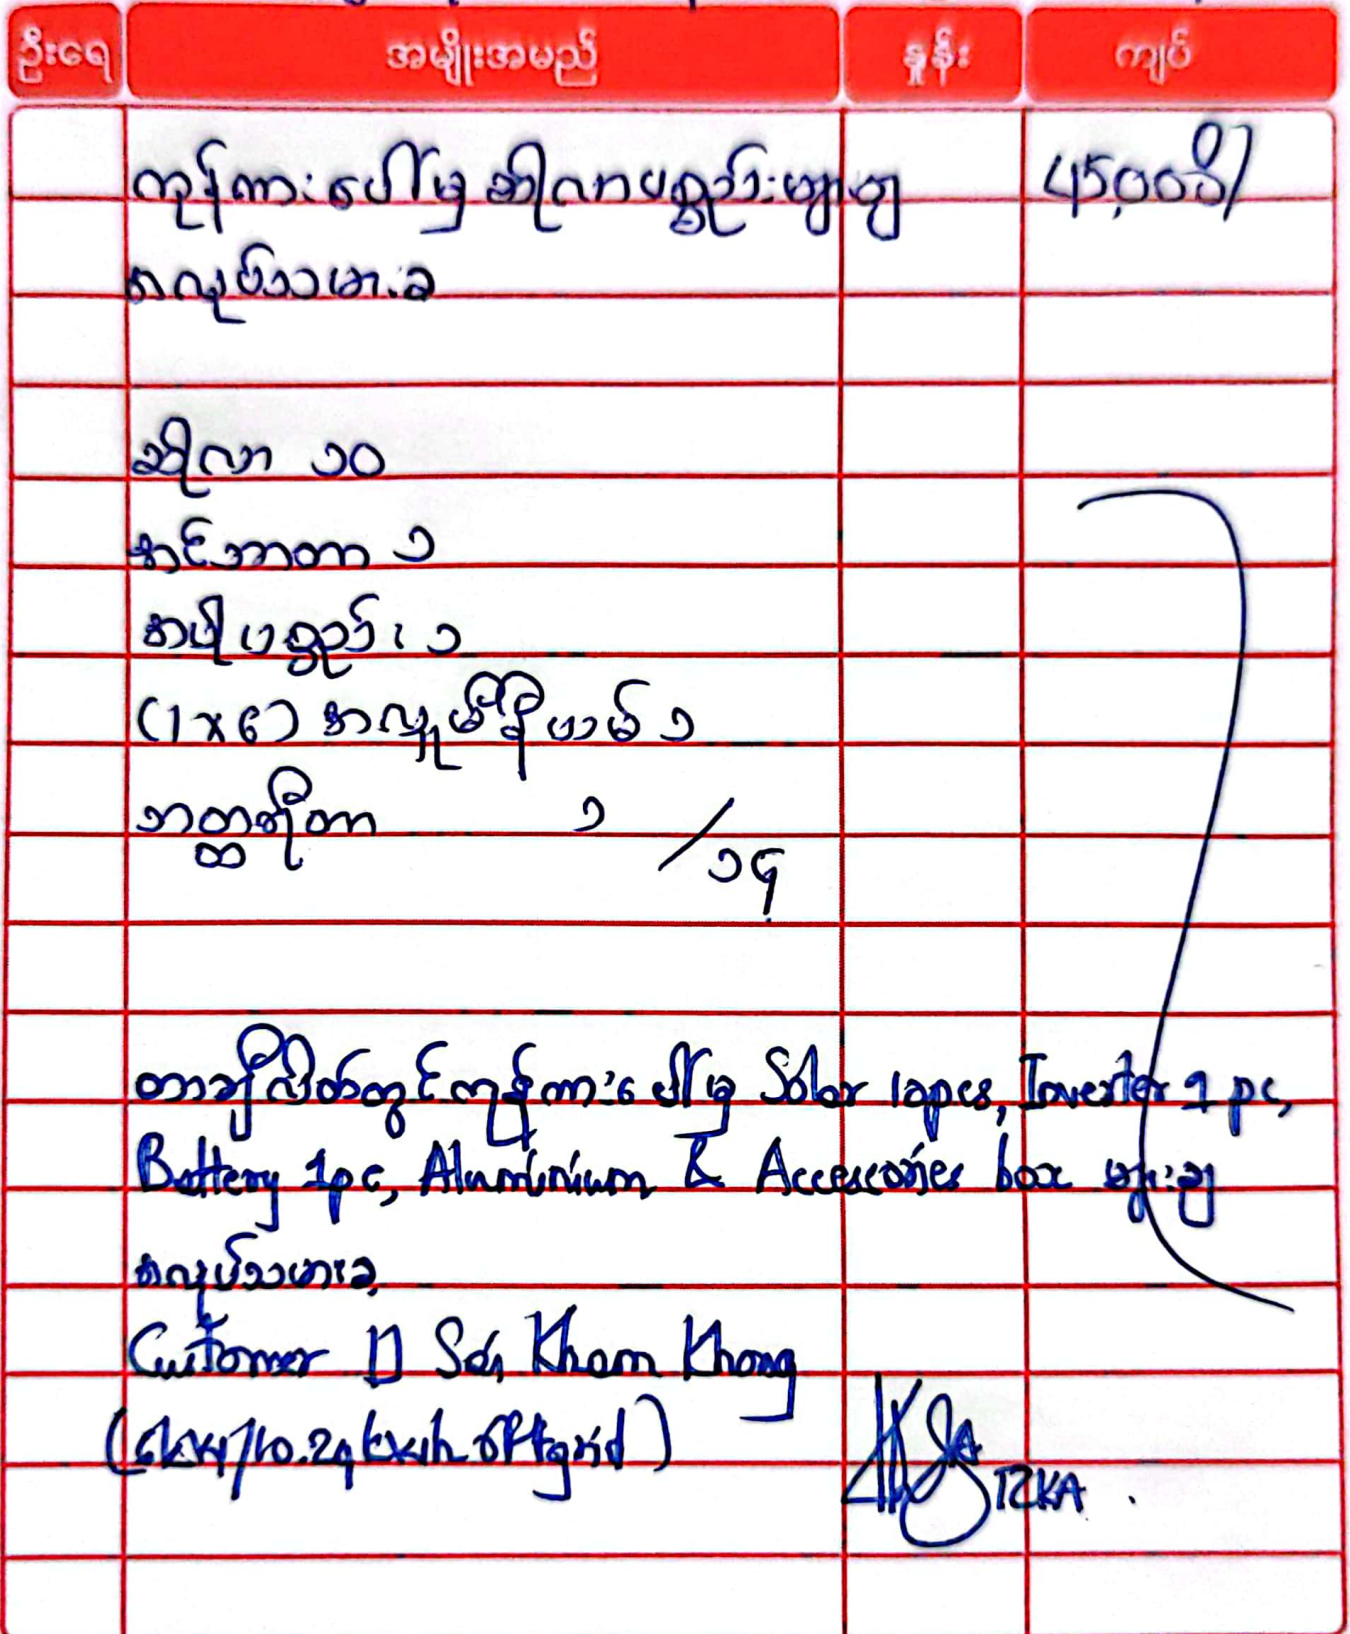 ဦးရေ အမျိုးအမည် နှုန်း ကျပ်
ကုန်ကားပေါ်မှ ဆိုလာပစ္စည်းများချ 45,000ိ/
အလုပ်သမားခ
ဆိုလာ ၁၀
အင်ဘာတာ ၁
အပိုပစ္စည်း ၁
(1x6) အလူမီနီယမ် ၁
ဘတ္ထရီတာ ၁ /၁၄
တာချီလိတ်တွင် ကုန်ကားပေါ်မှ Solar 10pcs, Inverter 1 pc,
Battery 1pc, Aluminium & Accessories box များချ
အလုပ်သမားခ
Customer Sai Kham Khong
(6kW/10.24kWh offgrid)
IZKA